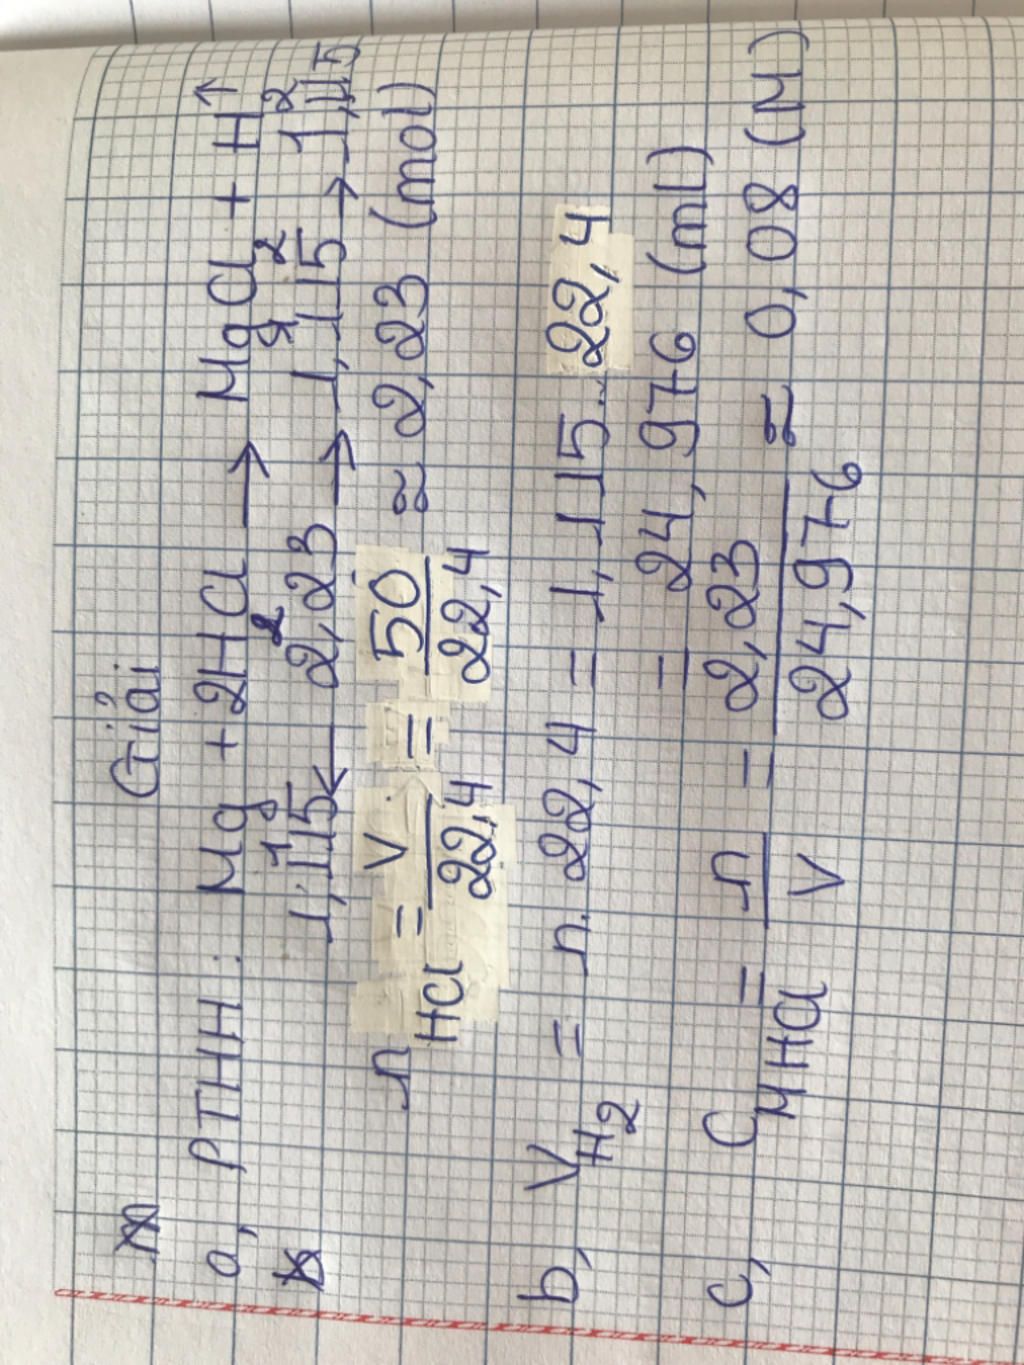 Giải
a, PTHH : Mg + 2HCl → MgCl₂ + H₂↑
1 2 1 1
1,115 ← 2,23 → 1,115 → 1,115
n HCl = V / 22,4 = 50 / 22,4 ≈ 2,23 (mol)
b, V H₂ = n . 22,4 = 1,115 . 22,4
= 24,976 (ml)
c, C M HCl = n / V = 2,23 / 24,976 ≈ 0,08 (M)